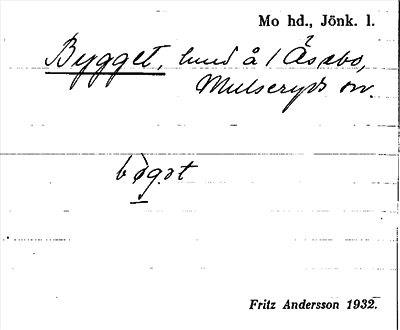 Mo hd., Jönk. l.
Bygget, hmd å / Åsabo,
Mulseryds sn.
bògət
Fritz Andersson 1932.